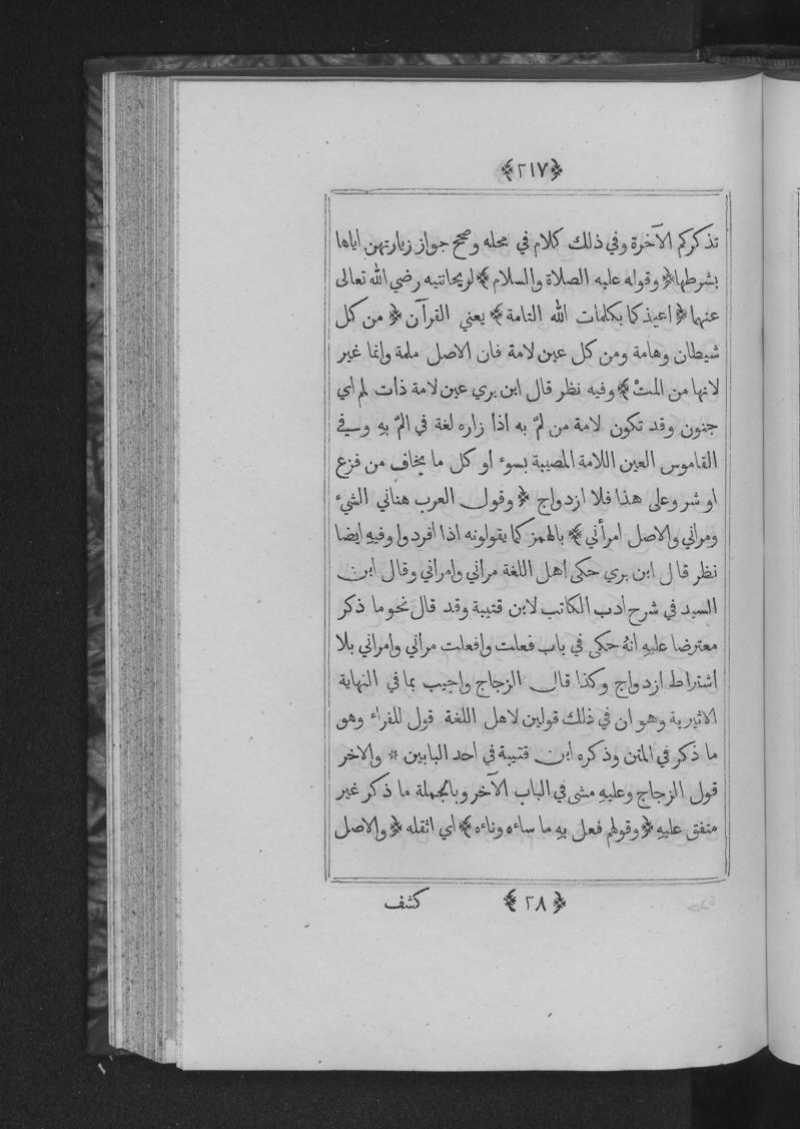 ﴿٢١٧﴾
تذكركم الآخرة وفي ذلك كلام في محله وصحح جواز زيارتهن اياها
بشرطها ﴿ وقوله عليه الصلاة والسلام ﴾ لريحانتيه رضي الله تعالى
عنهما ﴿ اعيذكما بكلمات الله التامة ﴾ يعني القرآن ﴿ من كل
شيطان وهامة ومن كل عين لامة فان الاصل ملمة وانما غير
لانها من الممتْ ﴾ وفيه نظر قال ابن بري عين لامة ذات لمم اي
جنون وقد تكون لامة من لمّ به اذا زاره لغة في المّ به وفي
القاموس العين اللامة المصيبة بسوء او كل ما يخاف من فزع
او شر وعلى هذا فلا ازدواج ﴿ وقول العرب هناني الشيء
ومراني والاصل امرأني ﴾ بالهمز كما يقولونه اذا افردوا وفيه ايضا
نظر قال ابن بري حكى اهل اللغة مراني وامراني وقال ابن
السيد في شرح ادب الكاتب لابن قتيبة وقد قال نحو ما ذكر
معترضا عليه انهُ حكى في باب فعلت وافعلت مراني وامراني بلا
اشتراط ازدواج وكذا قال الزجاج واجيب بما في النهاية
الاثيرية وهو ان في ذلك قولين لاهل اللغة قول للفراء وهو
ما ذكر في المتن وذكره ابن قتيبة في احد البابين * والاخر
قول الزجاج وعليه مشى في الباب الآخر وبالجملة ما ذكر غير
متفق عليه ﴿ وقولهم فعل به ما ساءه وناءه ﴾ اي اثقله ﴿ والاصل
﴿٢٨﴾ كشف